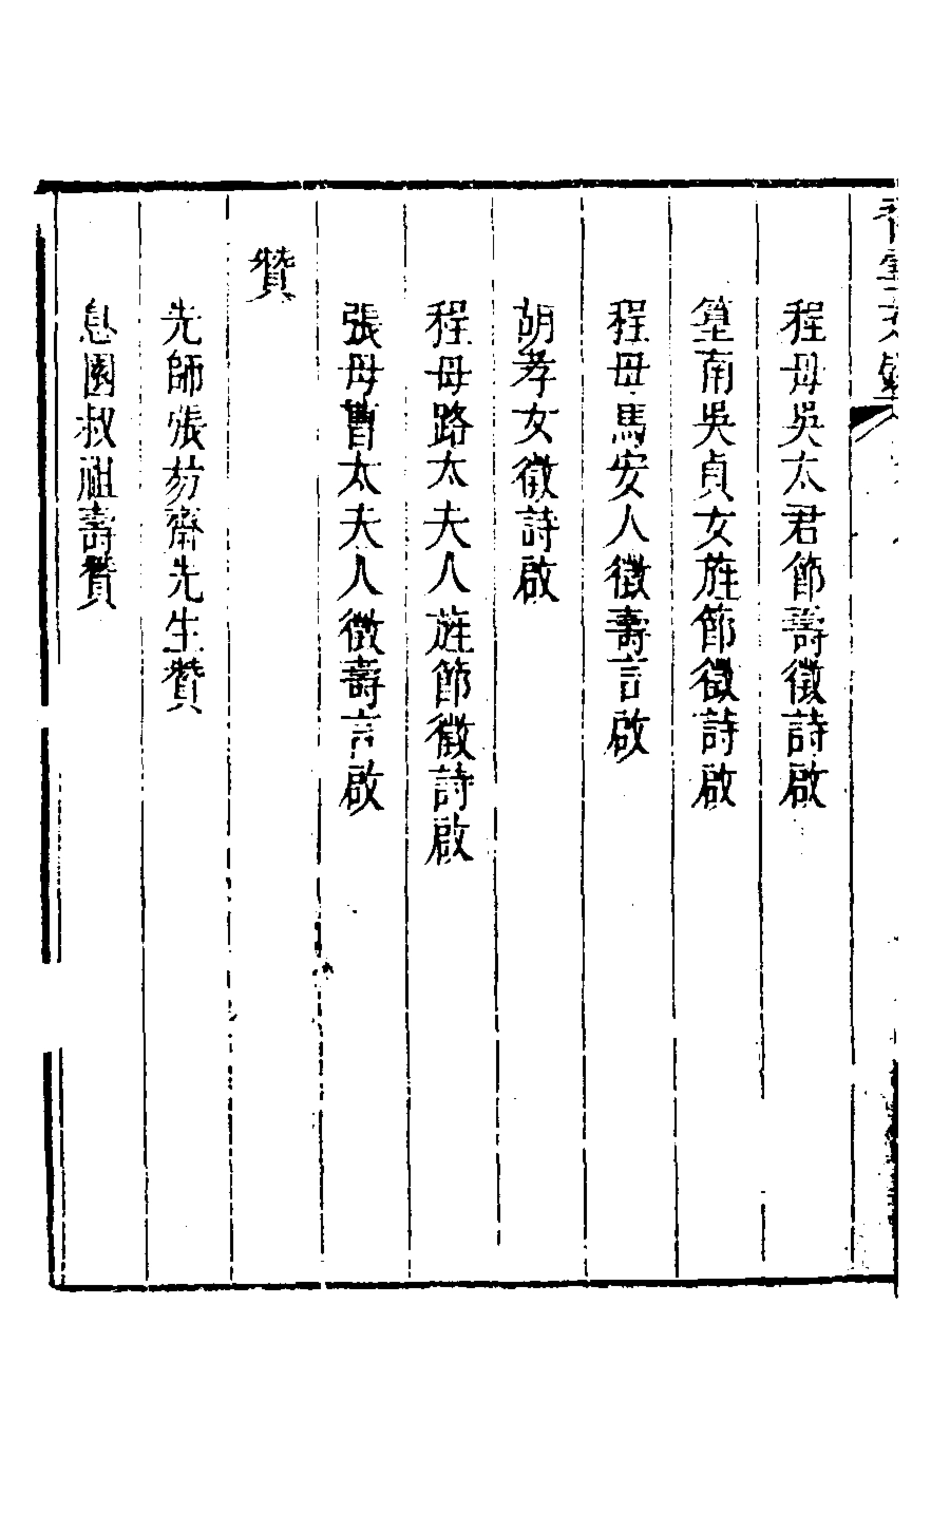 程母吳太君節壽徵詩啟
篁南吳貞女旌節徵詩啟
程母馬安人徵壽言啟
胡孝女徵詩啟
程母路太夫人旌節徵詩啟
張母曹太夫人徵壽言啟
贊
先師張芴齋先生贊
息園叔祖壽贊